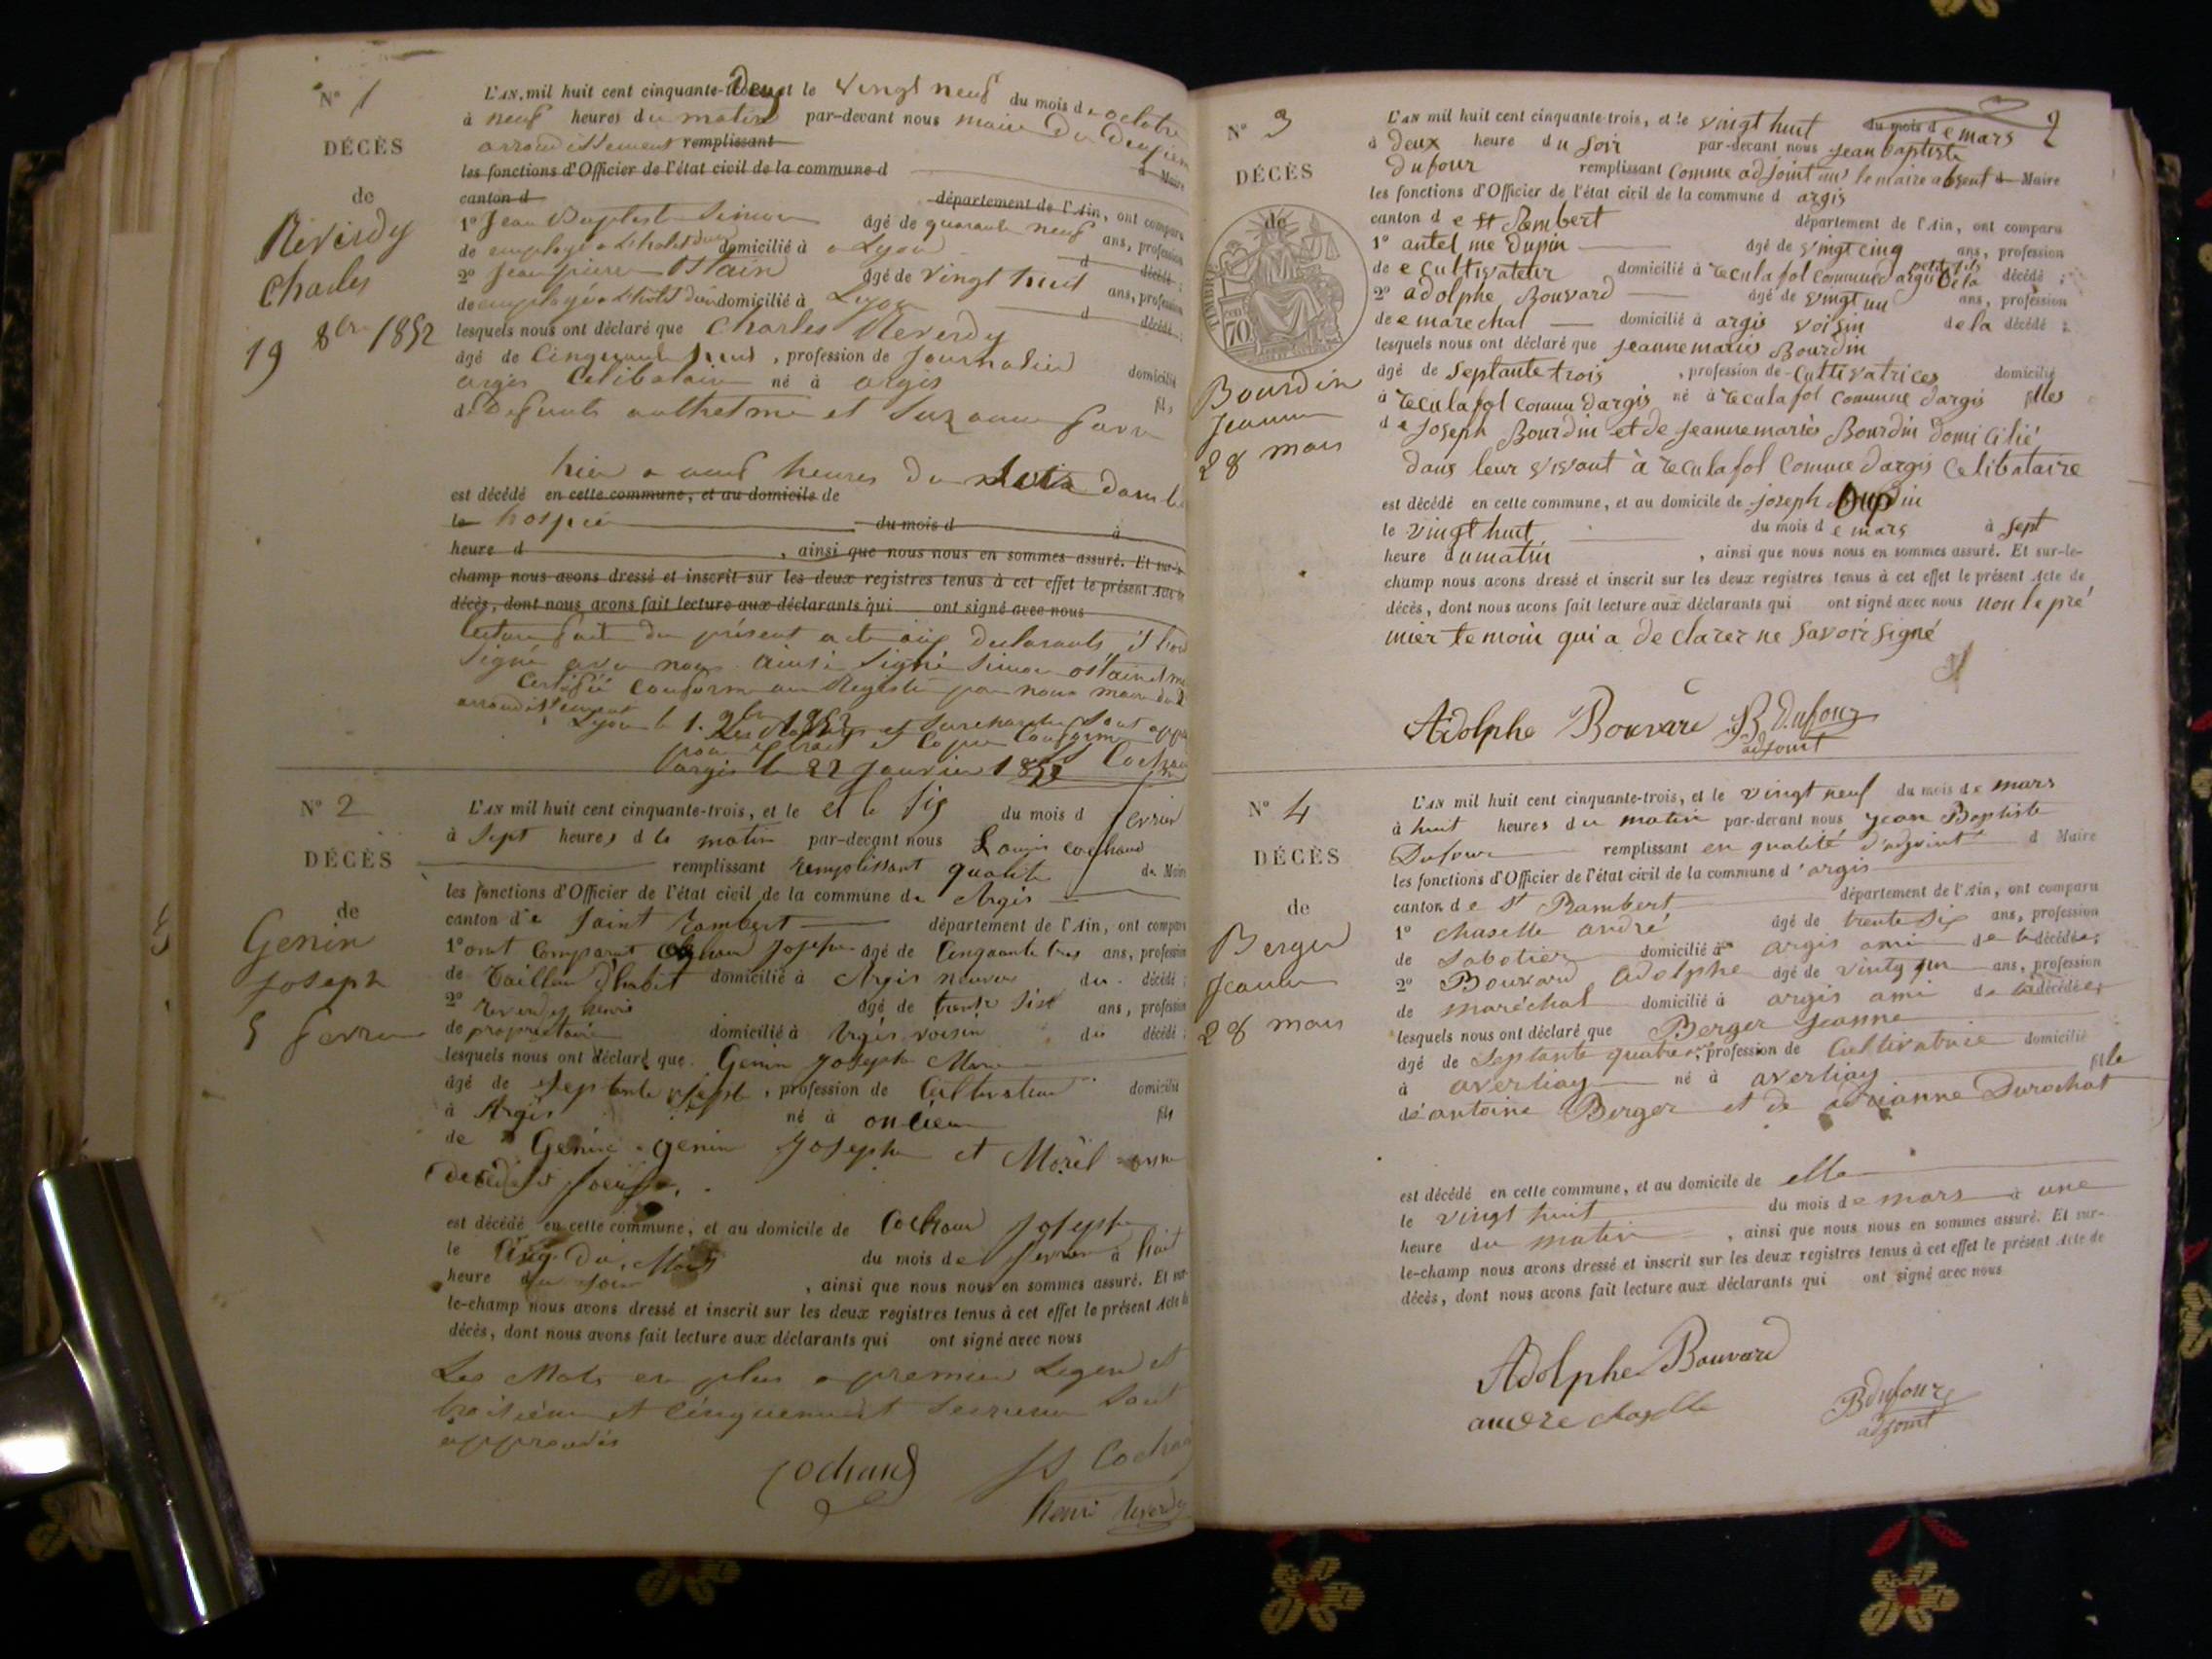 N° 1
DÉCÈS
de
Reverdy
Charles
19 8bre 1852
L'AN mil huit cent cinquante-deux et le vingt neuf du mois d'octobre
à neuf heures du matin par-devant nous maire du deuxième
arrondissement remplissant
les fonctions d'Officier de l'état civil de la commune d Maire
canton d département de l'Ain, ont comparu
1° Jean Baptiste Simon âgé de quarante neuf ans, profession
de employé à l'hotel dieu domicilié à Lyon d décédé;
2° Jean pierre Ostain âgé de vingt huit ans, profession
de employé à l'hotel dieu domicilié à Lyon d décédé;
lesquels nous ont déclaré que Charles Reverdy
âgé de cinquante neuf, profession de journalier domicilié
argis celibataire né à argis fils
de defunts anthelme et Suzanne
hier a neuf heures du dans le
est décédé en cette commune, et au domicile de
le hospice du mois d à
heure d , ainsi que nous nous en sommes assuré. Et sur-le-
champ nous avons dressé et inscrit sur les deux registres tenus à cet effet le présent Acte de
décès, dont nous avons fait lecture aux déclarants qui ont signé avec nous
lecture fait du présent acte aux declarants, il ont
signé avec nous ainsi signé Simon ostain
certifié conforme au Registre par nous maire du
arrondissement
Lyon le 1. 9bre 1852
pour extrait et copie conforme
argis le 22 Janvier 1853 Cochand
N° 2
DÉCÈS
de
Genin
Joseph
5 fevrier
L'AN mil huit cent cinquante-trois, et le et le six du mois d fevrier
à sept heures de matin par-devant nous Louis cochand
remplissant remplissant qualité de Maire
les fonctions d'Officier de l'état civil de la commune de Argis
canton de Saint Rambert département de l'Ain, ont comparu
1° ont comparut Cochand Joseph âgé de cinquante trois ans, profession
de Tailleur d'habit domicilié à Argis neveu du décédé;
2° Reverdy henri âgé de trente six ans, profession
de propriétaire domicilié à Argis voisin du décédé;
lesquels nous ont déclaré que Genin Joseph Marie
âgé de septante sept, profession de Cultivateur domicilié
à Argis né à oncieu fils
de Genin Joseph et Morel
est décédé en cette commune, et au domicile de Cochand Joseph
le cinq du Mois du mois de fevrier à huit
heure du soir , ainsi que nous nous en sommes assuré. Et sur-
le-champ nous avons dressé et inscrit sur les deux registres tenus à cet effet le présent Acte de
décès, dont nous avons fait lecture aux déclarants qui ont signé avec nous
Les Mots en plus a premier
troisieme et cinquieme sont
approuvés
Cochand Cochand
henri reverdy
2
N° 3
DÉCÈS
de
TIMBRE
70
Bourdin
Jeanne
28 mars
L'AN mil huit cent cinquante-trois, et le vingt huit du mois de mars
à deux heure du soir par-devant nous jean baptiste
Dufour remplissant comme adjoint le maire absent d Maire
les fonctions d'Officier de l'état civil de la commune d argis
canton d e st Rembert département de l'Ain, ont comparu
1° antel me dupin âgé de vingt cinq ans, profession
de e cultivateur domicilié à reculafol commune dargis petit fils de la décédé;
2° adolphe Bouvard âgé de vingt un ans, profession
de e marechal domicilié à argis voisin de la décédé;
lesquels nous ont déclaré que jeanne maries Bourdin
âgé de septante trois , profession de cultivatrices domicilié
à reculafol commu dargis né à reculafol commune dargis filles
d e joseph Bourdin et de jeanne maries Bourdin domicilié
dans leur vivant à reculafol commue dargis celibataire
est décédé en cette commune, et au domicile de joseph Dupin
le vingt huit du mois d e mars à sept
heure du matin , ainsi que nous nous en sommes assuré. Et sur-le-
champ nous avons dressé et inscrit sur les deux registres tenus à cet effet le présent Acte de
décès, dont nous avons fait lecture aux déclarants qui ont signé avec nous non le pré
mier temoin qui a de clarer ne savoir signé
Adolphe Bouvard B. Dufour
adjoint
N° 4
DÉCÈS
de
Berger
Jeanne
28 mars
L'AN mil huit cent cinquante-trois, et le vingt neuf du mois de mars
à huit heures du matin par-devant nous jean Baptiste
Dufour remplissant en qualité d'adjoint d Maire
les fonctions d'Officier de l'état civil de la commune d'argis
canton de st Rambert département de l'Ain, ont comparu
1° chaselle andré âgé de trente six ans, profession
de sabotier domicilié à argis ami de la décédée;
2° Bouvard adolphe âgé de vintg un ans, profession
de maréchal domicilié à argis ami de la décédée;
lesquels nous ont déclaré que Berger Jeanne
âgé de septante quatre ans, profession de cultivatrice domicilié
à averliay né à averliay fille
de antoine Berger et de adrianne Durochat
est décédé en cette commune, et au domicile de elle
le vingt huit du mois de mars à une
heure du matin , ainsi que nous nous en sommes assuré. Et sur-
le-champ nous avons dressé et inscrit sur les deux registres tenus à cet effet le présent Acte de
décès, dont nous avons fait lecture aux déclarants qui ont signé avec nous
Adolphe Bouvard
andre chaselle B Dufour
adjoint